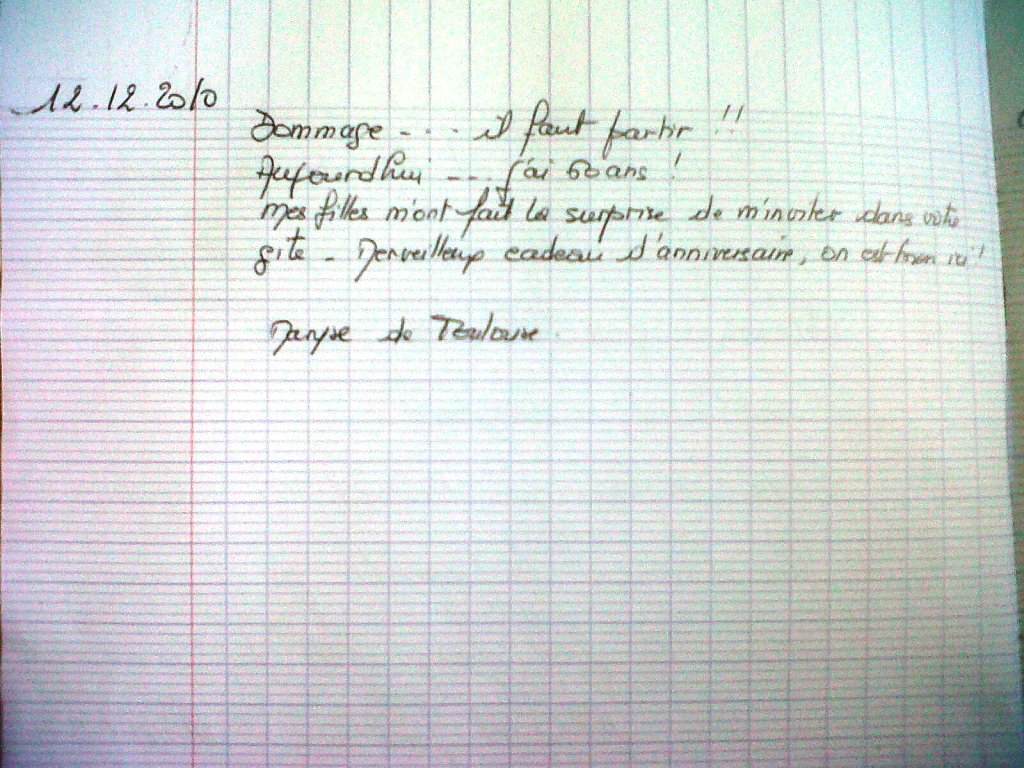 12.12.2010
Dommage - . . . il faut partir !!
Aujourd'hui - - . . j'ai 60 ans !
Mes filles m'ont fait la surprise de m'inviter dans votre
gite - Merveilleux cadeau d'anniversaire, on est bien ici !
Maryse de Toulouse.